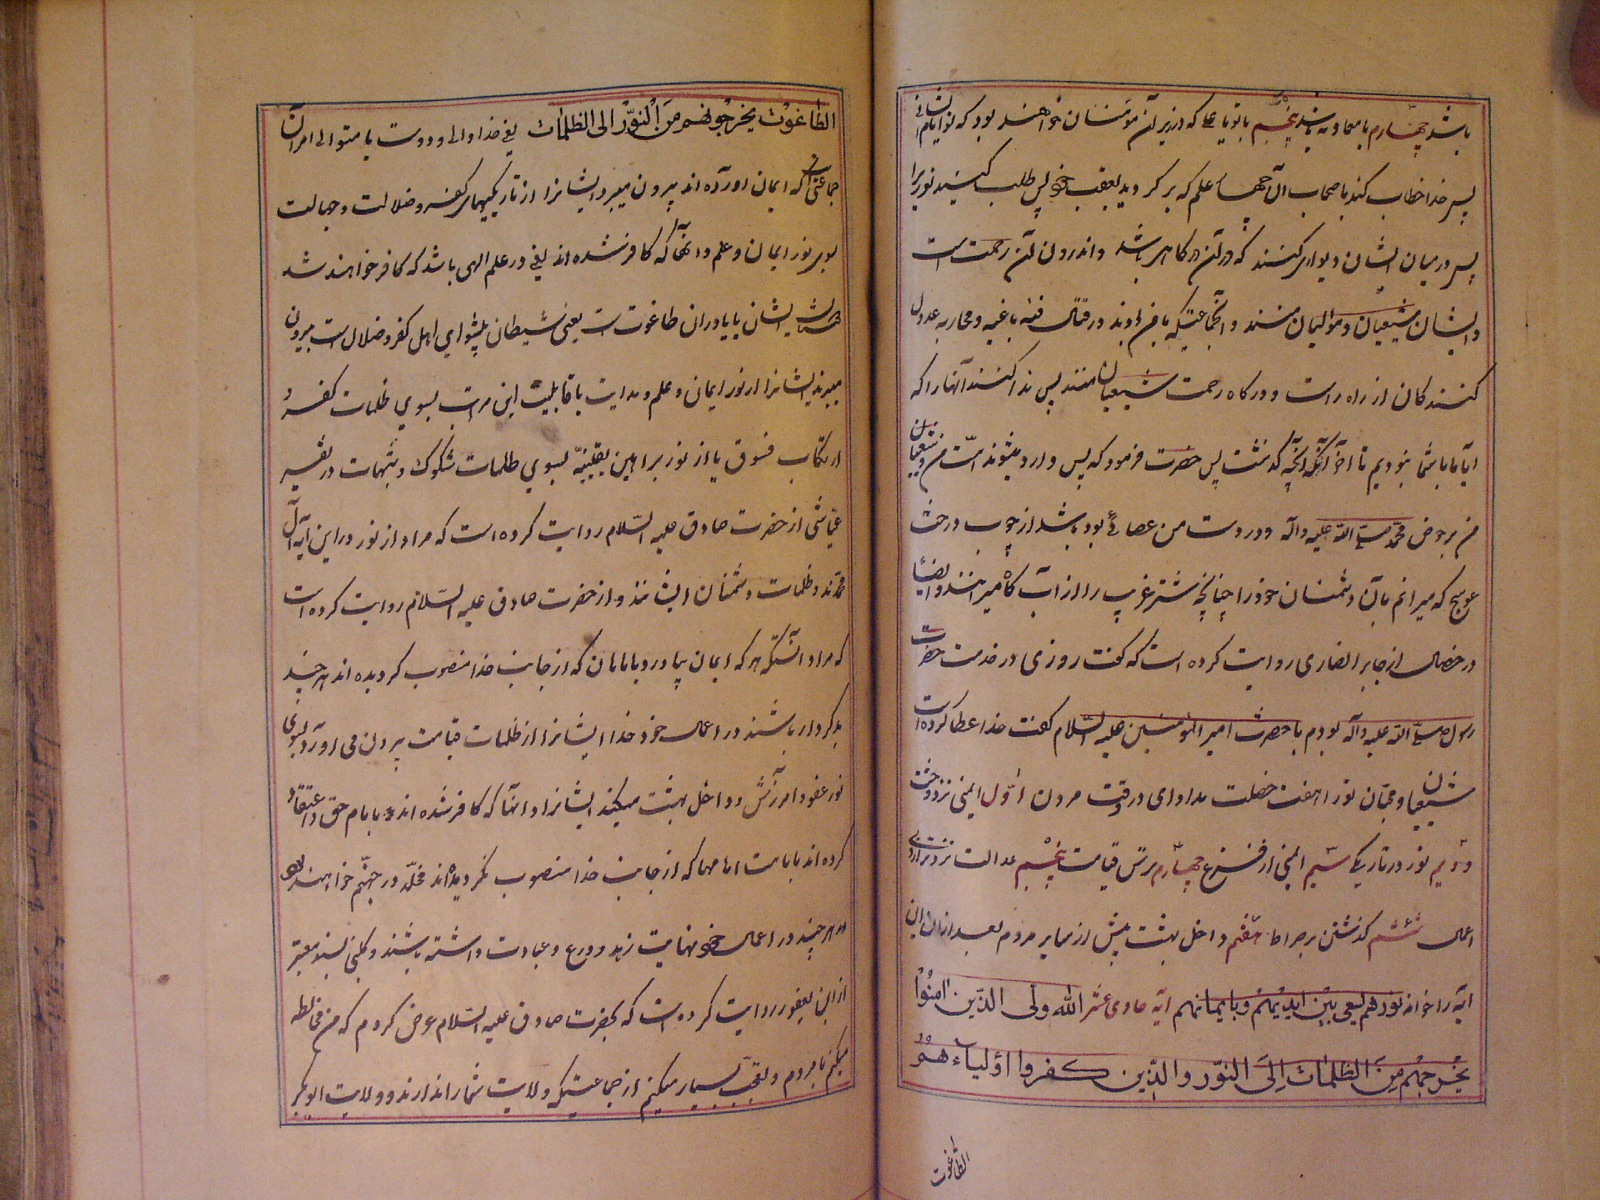 باشد چهارم با معاویه باشد پنجم با تو یا علی که در زیر آن مؤمنان خواهند بود که تو امام ایشانی
پس خدا خطاب کند باصحاب آن چهار علم که برگردید بعقب خود پس طلب کنید نور را
پس در میان ایشان دیواری کنند که در آن درگاهی باشد و اندرون آن رحمت است
و ایشان شیعیان و موالیان منند و آنجماعتیکه با من بودند در قتال فئه باغیه و محاربه عدول
کنندگان از راه راست و درگاه رحمت شیعیان منند پس ندا کنند آنها را که
آیا ما با شما نبودیم تا آخر آنچه گذشت پس حضرت فرمود که پس وارد میشوند امت من و شیعیان
من بر حوض محمد صلی الله علیه وآله و در دست من عصائی بوده باشد از چوب درخت
عوسج که میرانم بآن دشمنان خود را چنانچه شتر غریب را از آب گاه میرانند و ایضا
در خصال از جابر انصاری روایت کرده است که گفت روزی در خدمت حضرت
رسول صلی الله علیه وآله بودم با حضرت امیر المؤمنین علیه السلام گفت خدا عطا کرده است
شیعیان و محبان تو را هفت خصلت مدارای در وقت مردن اول ایمنی نزد وحشت
دویم نور در تاریکی سیم ایمنی از فزع چهارم ترس قیامت پنجم عدالت نزد ترازوی
اعمال ششم گذشتن بر صراط هفتم داخل بهشت پیش از سایر مردم بعد از آن این
آیه را خواند نورهم یسعی بین ایدیهم وبایمانهم آیه حادی عشر الله ولی الذین امنوا
یخرجهم من الظلمات الی النور والذین کفروا اولیاءهم
الطاغوت
الطاغوت یخرجونهم من النور الی الظلمات یعنی خدا والی و دوست یا متولی امر آن
جماعتی است که ایمان آورده اند بیرون میبرد ایشانرا از تاریکیهای کفر و ضلالت و جهالت
بسوی نور ایمان و علم و آنها که کافر شده اند یعنی در علم الهی باشد که کافر خواهند شد
ایشان یا یاوران طاغوت است یعنی شیطان پیشوای اهل کفر و ضلال است بیرون
میبرند ایشانرا از نور ایمان و علم و هدایت یا قابلیت این مراتب بسوی ظلمات کفر و
ارتکاب فسوق یا از نور براهین یقینیه بسوی ظلمات شکوک و شبهات در تفسیر
عیاشی از حضرت صادق علیه السلام روایت کرده است که مراد از نور در این آیه آل
محمدند و ظلمات دشمنان ایشانند و از حضرت صادق علیه السلام روایت کرده است
که مراد آنستکه هر که ایمان بیاورد بامامان که از جانب خدا منصوب گردیده اند هر چند
بدکردار باشند در اعمال خود خدا ایشانرا از ظلمات قیامت بیرون می آورد بسوی
نور عفو و آمرزش و داخل بهشت میکند ایشانرا و آنها که کافر شده اند بامام حق و اعتقاد
کرده اند بامامت امامها که از جانب خدا منصوب نگردیده اند مخلد در جهنم خواهند بود
هر چند در اعمال خود نهایت زهد و ورع و عبادت داشته باشند و کلینی بسند معتبر
از ابن یعفور روایت کرده است که بحضرت صادق علیه السلام عرض کردم که من مخالطه
میکنم با مردم و تعجب بسیار میکنم از جماعتیکه ولایت شما را ندارند و ولایت ابوبکر